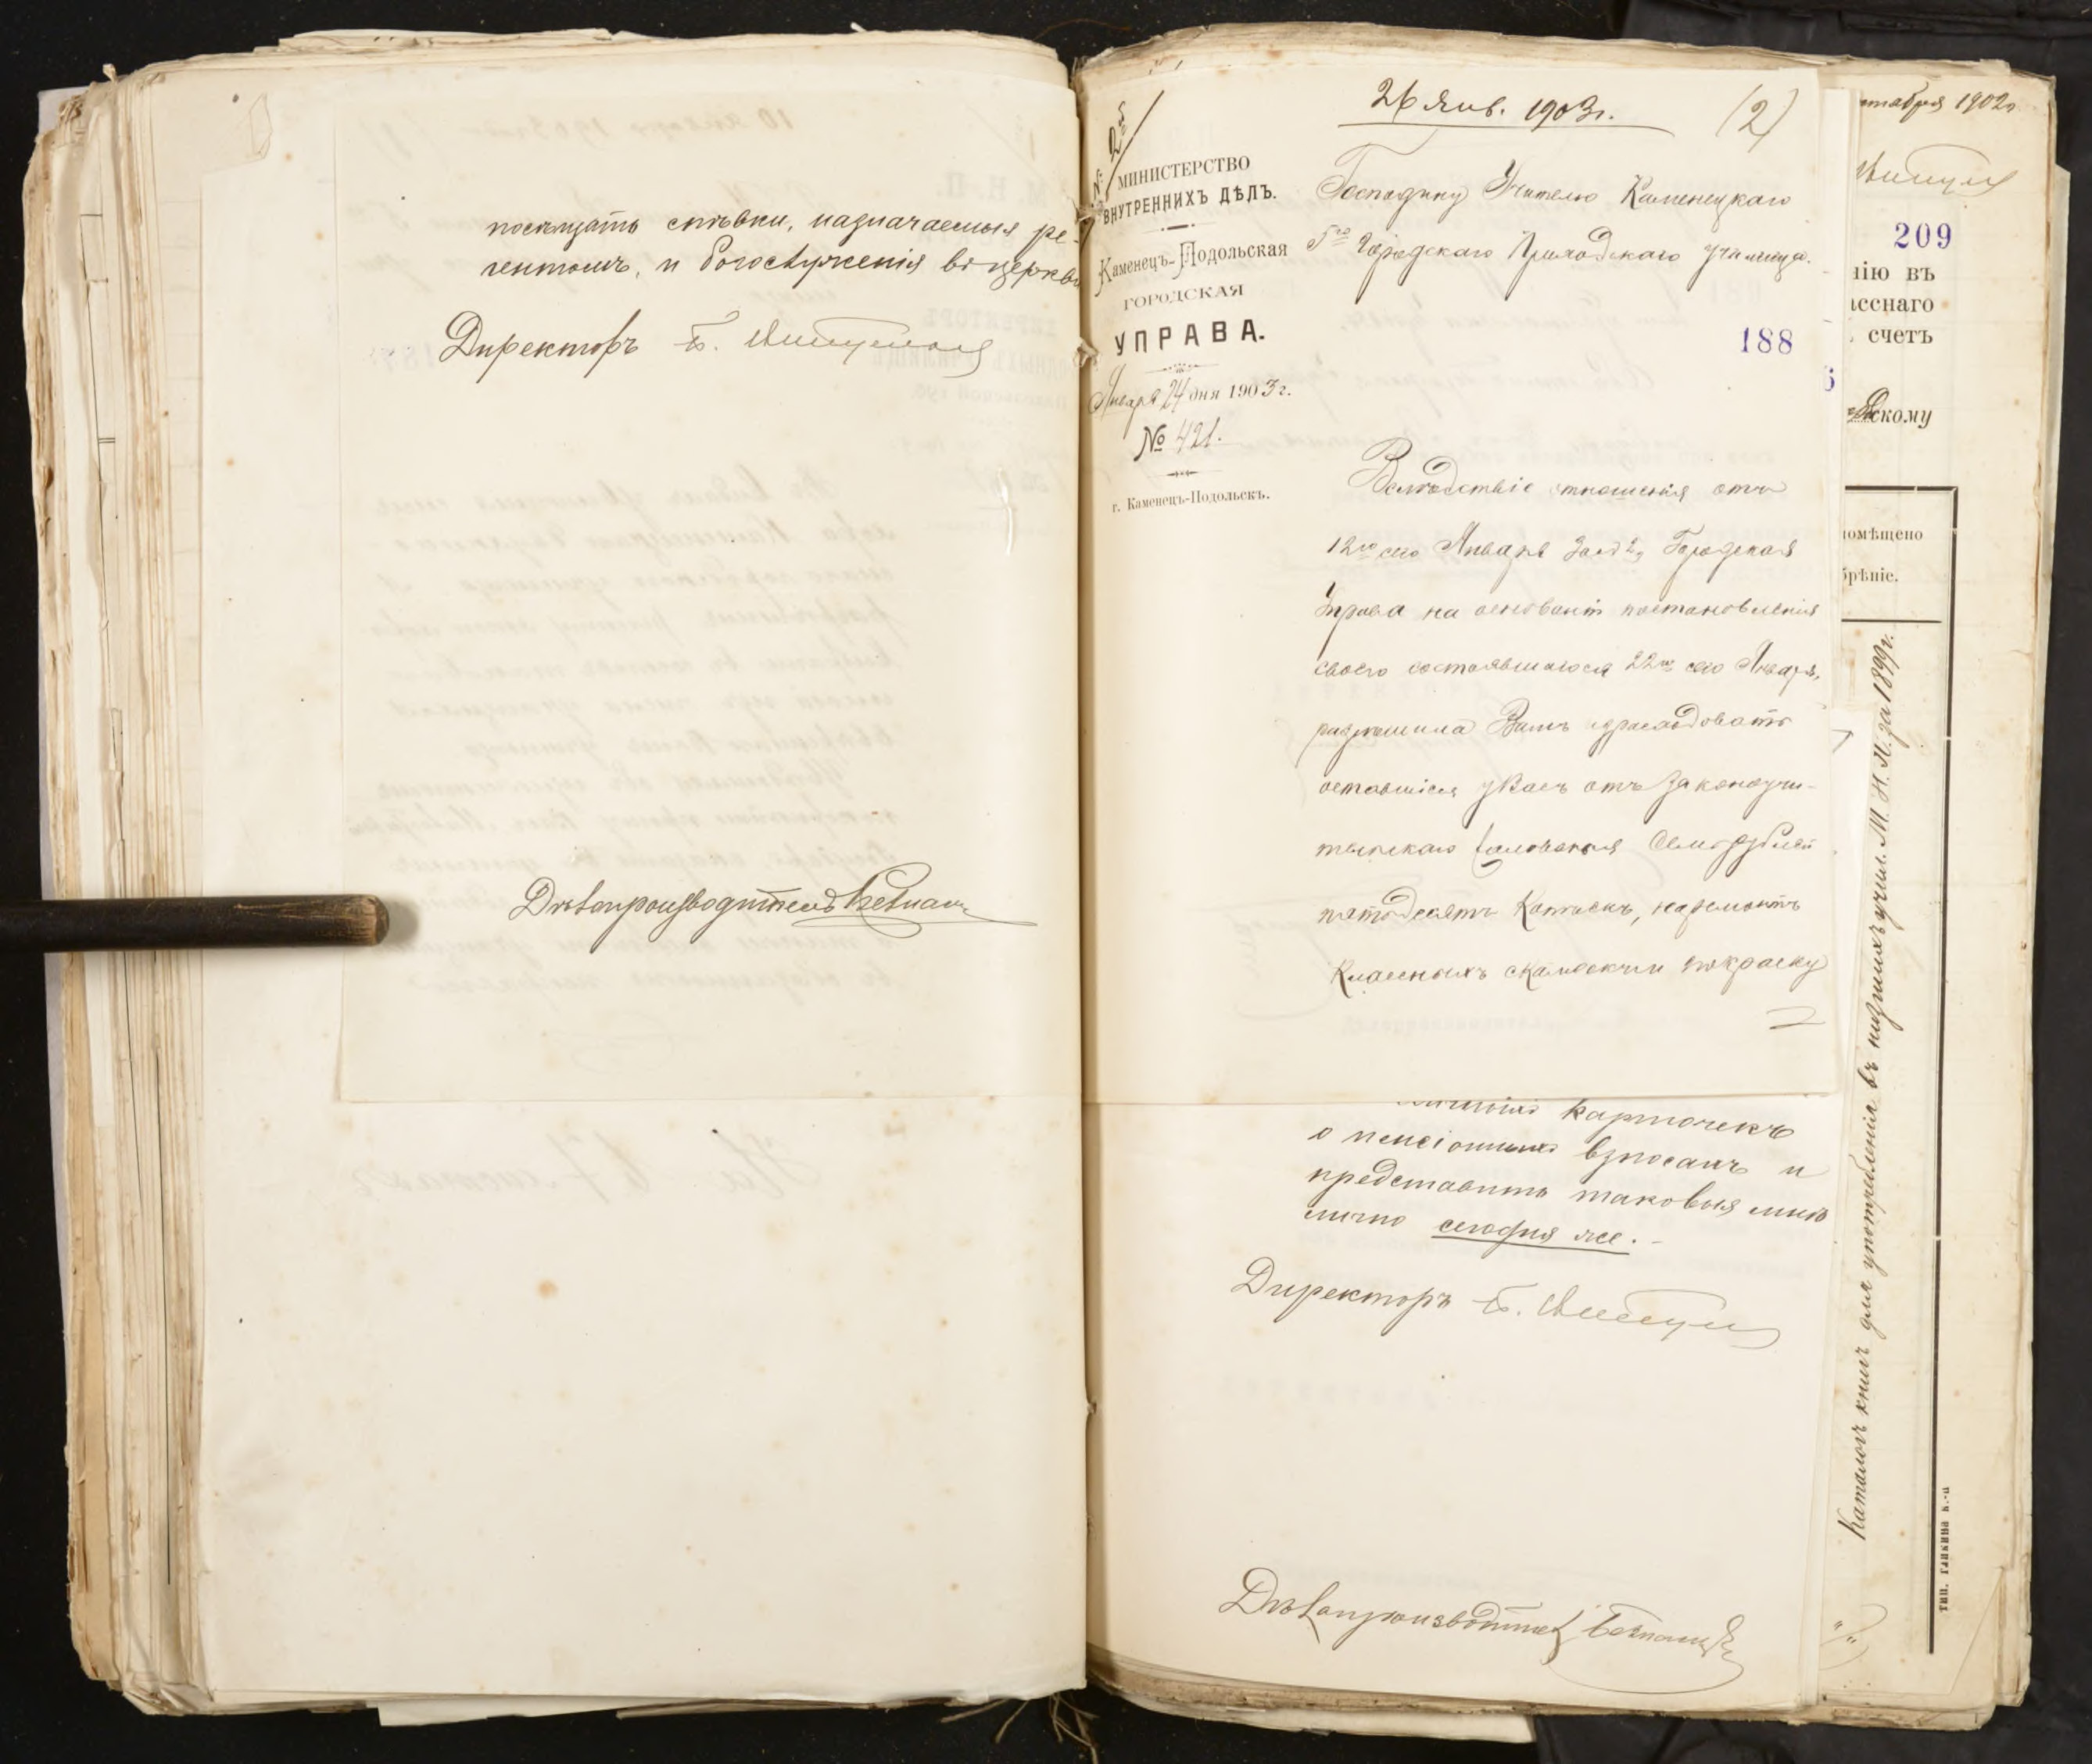 посѣщать спѣвки, назначаемыя ре-
гентомъ, и богослуженія въ церкви
Директоръ
Дѣлопроизводитель
26 Янв. 1903 г.
(2)
№ 2
МИНИСТЕРСТВО
ВНУТРЕННИХЪ ДѢЛЪ.
Каменецъ-Подольская
ГОРОДСКАЯ
УПРАВА.
Января 24 дня 1903 г.
№ 421.
г. Каменецъ-Подольскъ.
Господину Учителю Каменецкаго
5го Городскаго Приходскаго училища.
188
Вслѣдствіе отношенія отъ
12го сего Января за № 2, Городская
Управа на основаніи постановленія
своего состоявшагося 22го сего Января,
разрѣшила Вамъ израсходовать
оставшіеся у Васъ отъ законоучи-
тельскаго жалованья Семь рублей
пятьдесятъ Копѣекъ, на ремонтъ
Классныхъ скамеекъ и покраску
карточекъ
о пенсіонныхъ взносахъ и
представить таковыя мнѣ
лично сегодня же.
Директоръ
Дѣлопроизводитель
тября 1902 г.
209
нію въ
ласснаго
счетъ
скому
помѣщено
брѣніе.
Каталогъ книгъ для употребленія въ низшихъ учил. М. Н. П. за 1899 г.
тип. Гликина К.-П